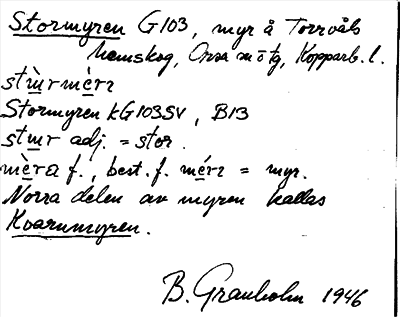 Stormyren G103, myr å Torrvåls
hemskog, Orsa m o tg, Kopparb. l.
Stormyren kG103SV, B13
adj. = stor.
f., best. f. = myr.
Norra delen av myren kallas
Kvarnmyren.
B. Granholm 1946